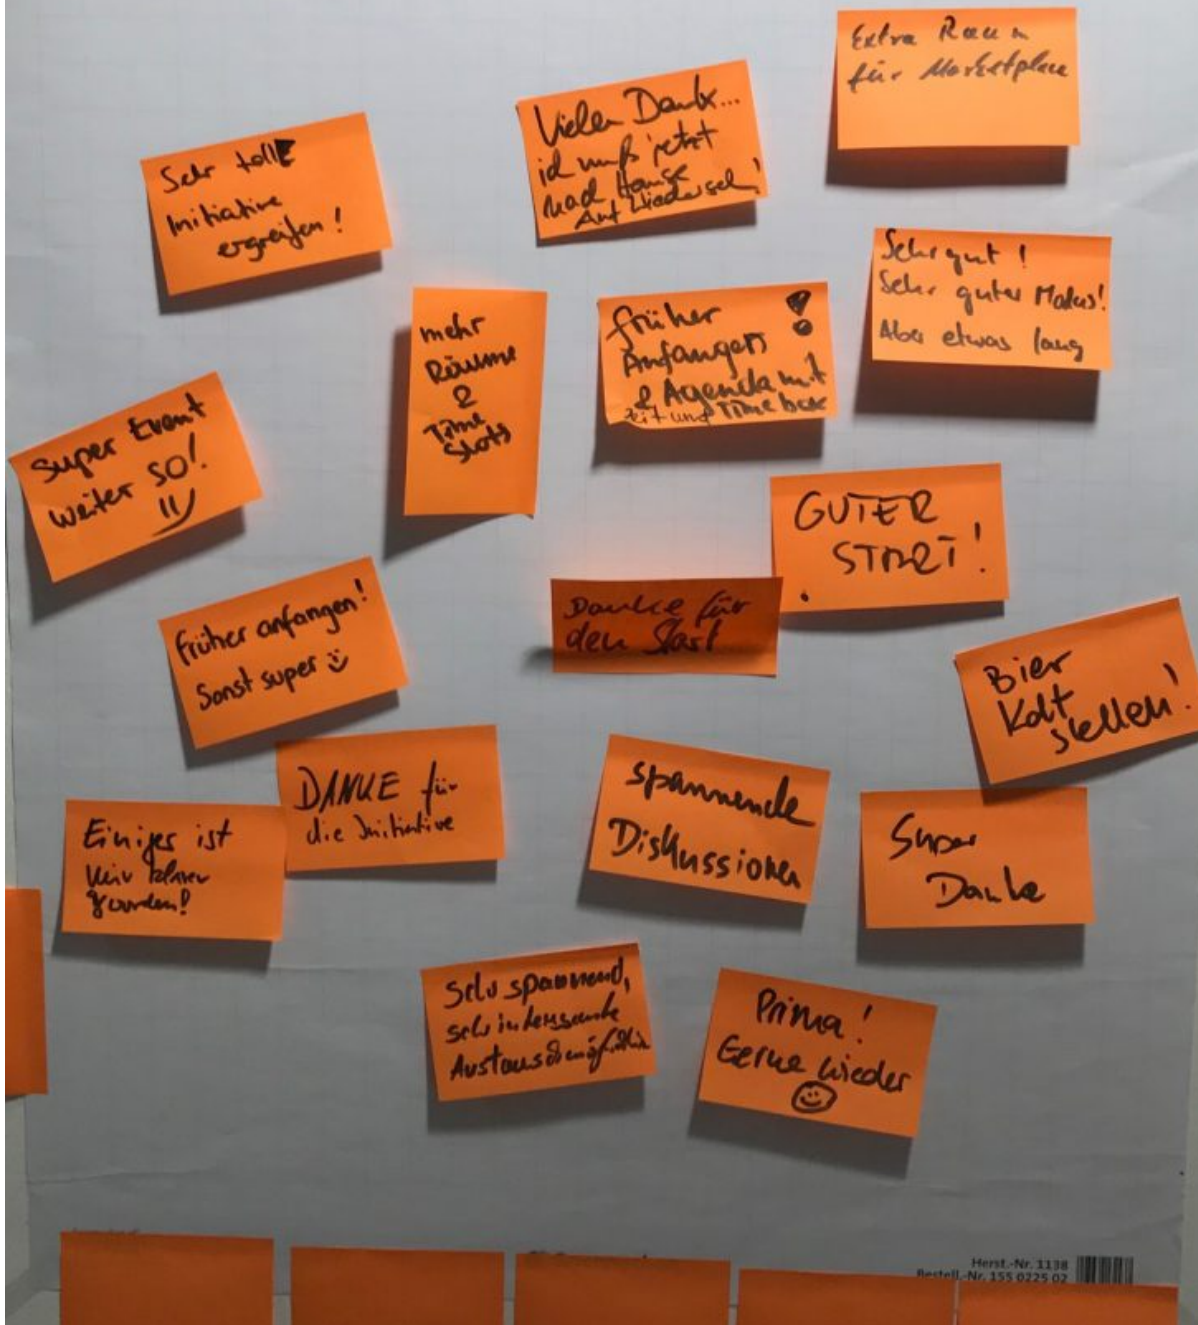 Extra Raum
für Marketplace
Vielen Dank...
ich muß jetzt
nach Hause
Auf Wiedersehn!
Sehr tollE
Initiative
ergreifen!
Sehr gut!
Sehr guter Modus!
Aber etwas lang
mehr
Räume
&
Time
Slots
früher
Anfangen
& Agenda mit
Zeit und Time box
!
Super Event
weiter so!
GUTER
START!
früher anfangen!
Sonst super
Danke für
den Start
Bier
Kalt
stellen!
DANKE für
die Initiative
spannende
Diskussionen
Einiges ist
mir klarer
geworden!
Super
Danke
Sehr spannend,
sehr interessante
Austauschmöglichk
Prima!
Gerne wieder
Herst.-Nr. 1138
Bestell.-Nr. 155 0225 02